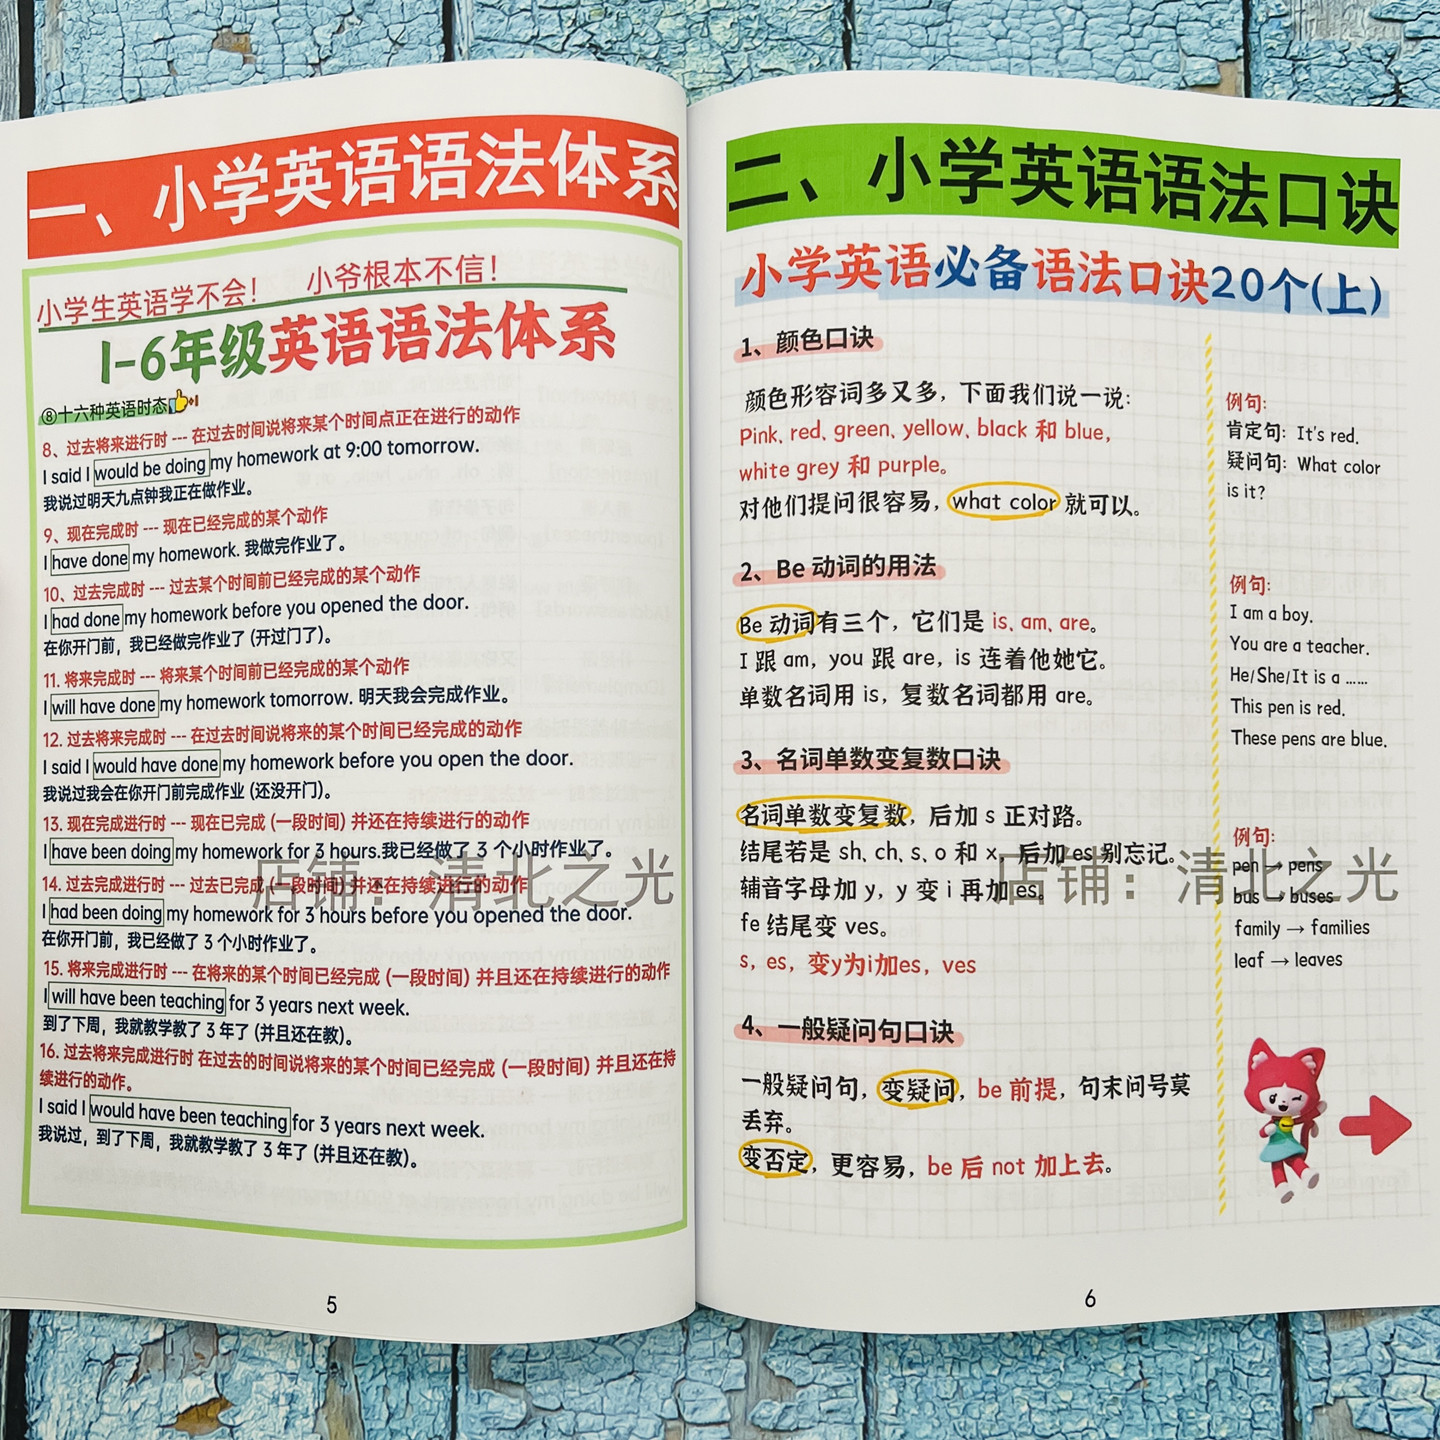 一、小学英语语法体系
小学生英语学不会！ 小爷根本不信！
1-6年级英语语法体系
⑧十六种英语时态
8、过去将来进行时 --- 在过去时间说将来某个时间点正在进行的动作
I said I would be doing my homework at 9:00 tomorrow.
我说过明天九点钟我正在做作业。
9、现在完成时 --- 现在已经完成的某个动作
I have done my homework. 我做完作业了。
10、过去完成时 --- 过去某个时间前已经完成的某个动作
I had done my homework before you opened the door.
在你开门前，我已经做完作业了 (开过门了)。
11. 将来完成时 --- 将来某个时间前已经完成的某个动作
I will have done my homework tomorrow. 明天我会完成作业。
12. 过去将来完成时 --- 在过去时间说将来的某个时间已经完成的动作
I said I would have done my homework before you open the door.
我说过我会在你开门前完成作业 (还没开门)。
13. 现在完成进行时 --- 现在已完成 (一段时间) 并还在持续进行的动作
I have been doing my homework for 3 hours.我已经做了 3 个小时作业了。
14. 过去完成进行时 --- 过去已完成 (一段时间) 并还在持续进行的动作
I had been doing my homework for 3 hours before you opened the door.
在你开门前，我已经做了 3 个小时作业了。
15. 将来完成进行时 --- 在将来的某个时间已经完成 (一段时间) 并且还在持续进行的动作
I will have been teaching for 3 years next week.
到了下周，我就教学教了 3 年了 (并且还在教)。
16. 过去将来完成进行时 在过去的时间说将来的某个时间已经完成 (一段时间) 并且还在持
续进行的动作。
I said I would have been teaching for 3 years next week.
我说过，到了下周，我就教学教了 3 年了 (并且还在教)。
店铺：清北之光
5
二、小学英语语法口诀
小学英语必备语法口诀20个(上)
1、颜色口诀
颜色形容词多又多，下面我们说一说：
Pink、red、green、yellow、black 和 blue，
white grey 和 purple。
对他们提问很容易，what color 就可以。
例句:
肯定句: It's red.
疑问句: What color
is it?
2、Be 动词的用法
Be 动词有三个，它们是 is、am、are。
I 跟 am，you 跟 are，is 连着他她它。
单数名词用 is，复数名词都用 are。
例句:
I am a boy.
You are a teacher.
He/She/It is a ……
This pen is red.
These pens are blue.
3、名词单数变复数口诀
名词单数变复数，后加 s 正对路。
结尾若是 sh、ch、s、o 和 x，后加 es 别忘记。
辅音字母加 y，y 变 i 再加 es。
fe 结尾变 ves。
s，es，变y为i加es，ves
例句:
pen → pens
bus → buses
family → families
leaf → leaves
4、一般疑问句口诀
一般疑问句，变疑问，be 前提，句末问号莫
丢弃。
变否定，更容易，be 后 not 加上去。
店铺：清北之光
6